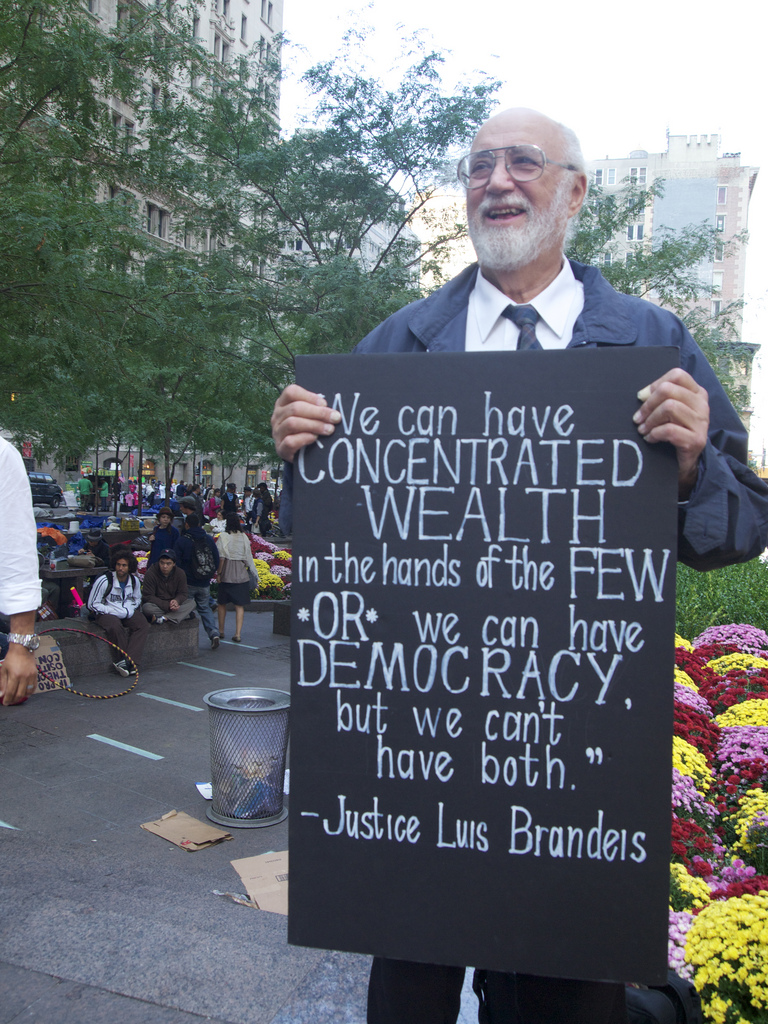 "We can have
CONCENTRATED
WEALTH
in the hands of the FEW
*OR* we can have
DEMOCRACY,
but we can't
have both."
-Justice Luis Brandeis